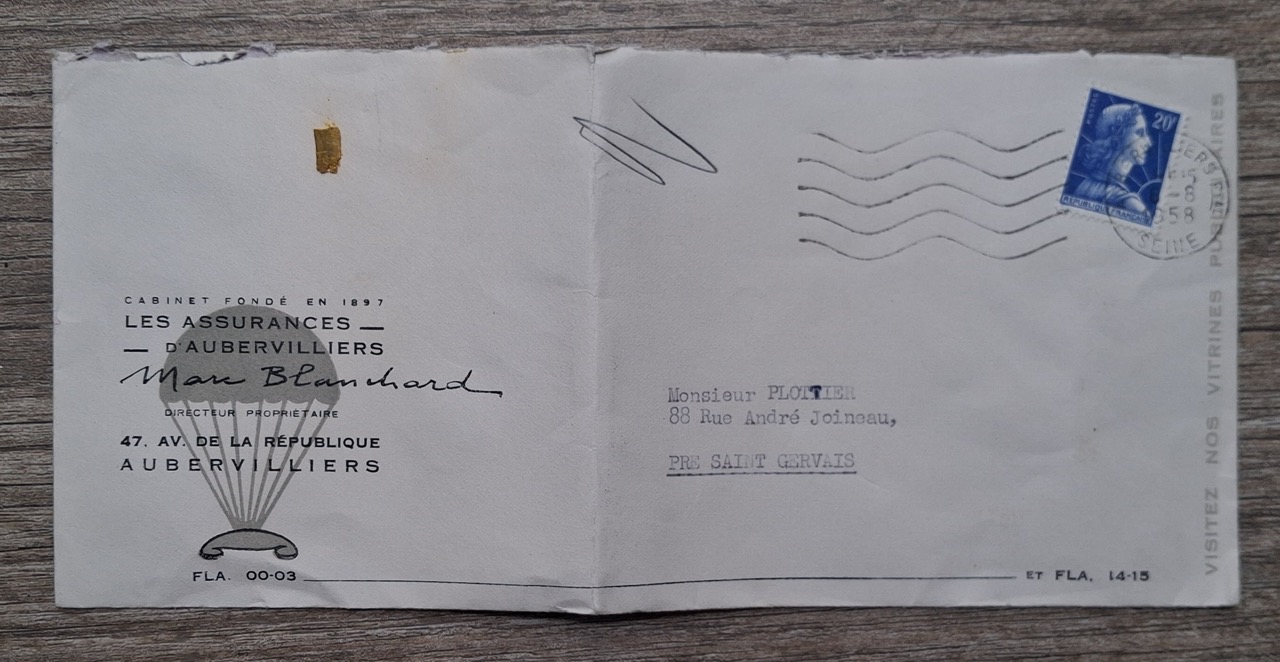 CABINET FONDÉ EN 1897
LES ASSURANCES
D'AUBERVILLIERS
Marc Blanchard
DIRECTEUR PROPRIÉTAIRE
47. AV. DE LA RÉPUBLIQUE
AUBERVILLIERS
FLA. 00-03
ET FLA. 14-15
Monsieur PLOTTIER
88 Rue André Joineau,
PRE SAINT GERVAIS
POSTES
20F
REPUBLIQUE FRANÇAISE
SEINE
VISITEZ NOS VITRINES PUBLICITAIRES